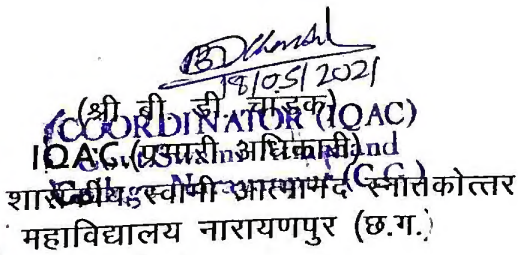 18/05/2021
(श्री बी. डी. चांडक)
(COORDINATOR (IQAC)
IQAC (प्रभारी अधिकारी)
शासकीय स्वामी आत्मानंद स्नातकोत्तर
महाविद्यालय नारायणपुर (छ.ग.)